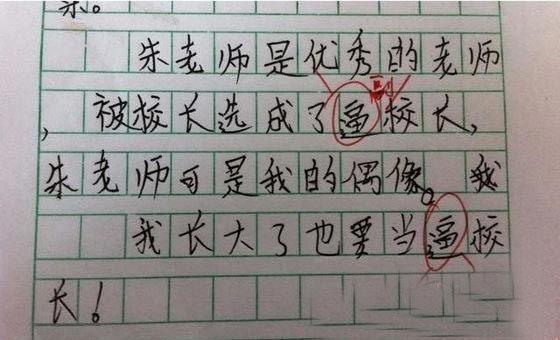 余。
朱老师是优秀的老师
副
，被校长选成了逼校长，
朱老师可是我的偶像。我
我长大了也要当逼校
长！